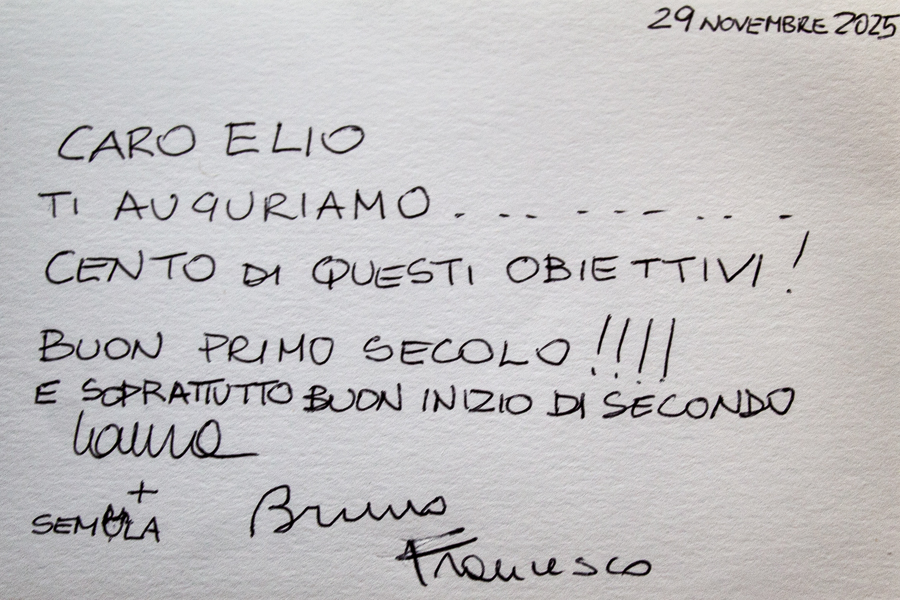 29 NOVEMBRE 2025
CARO ELIO
TI AUGURIAMO . . . . - - - - . . -
CENTO DI QUESTI OBIETTIVI!
BUON PRIMO SECOLO !!!!
E SOPRATTUTTO BUON INIZIO DI SECONDO
Laura
+
SEMOLA
Bruno
Francesco